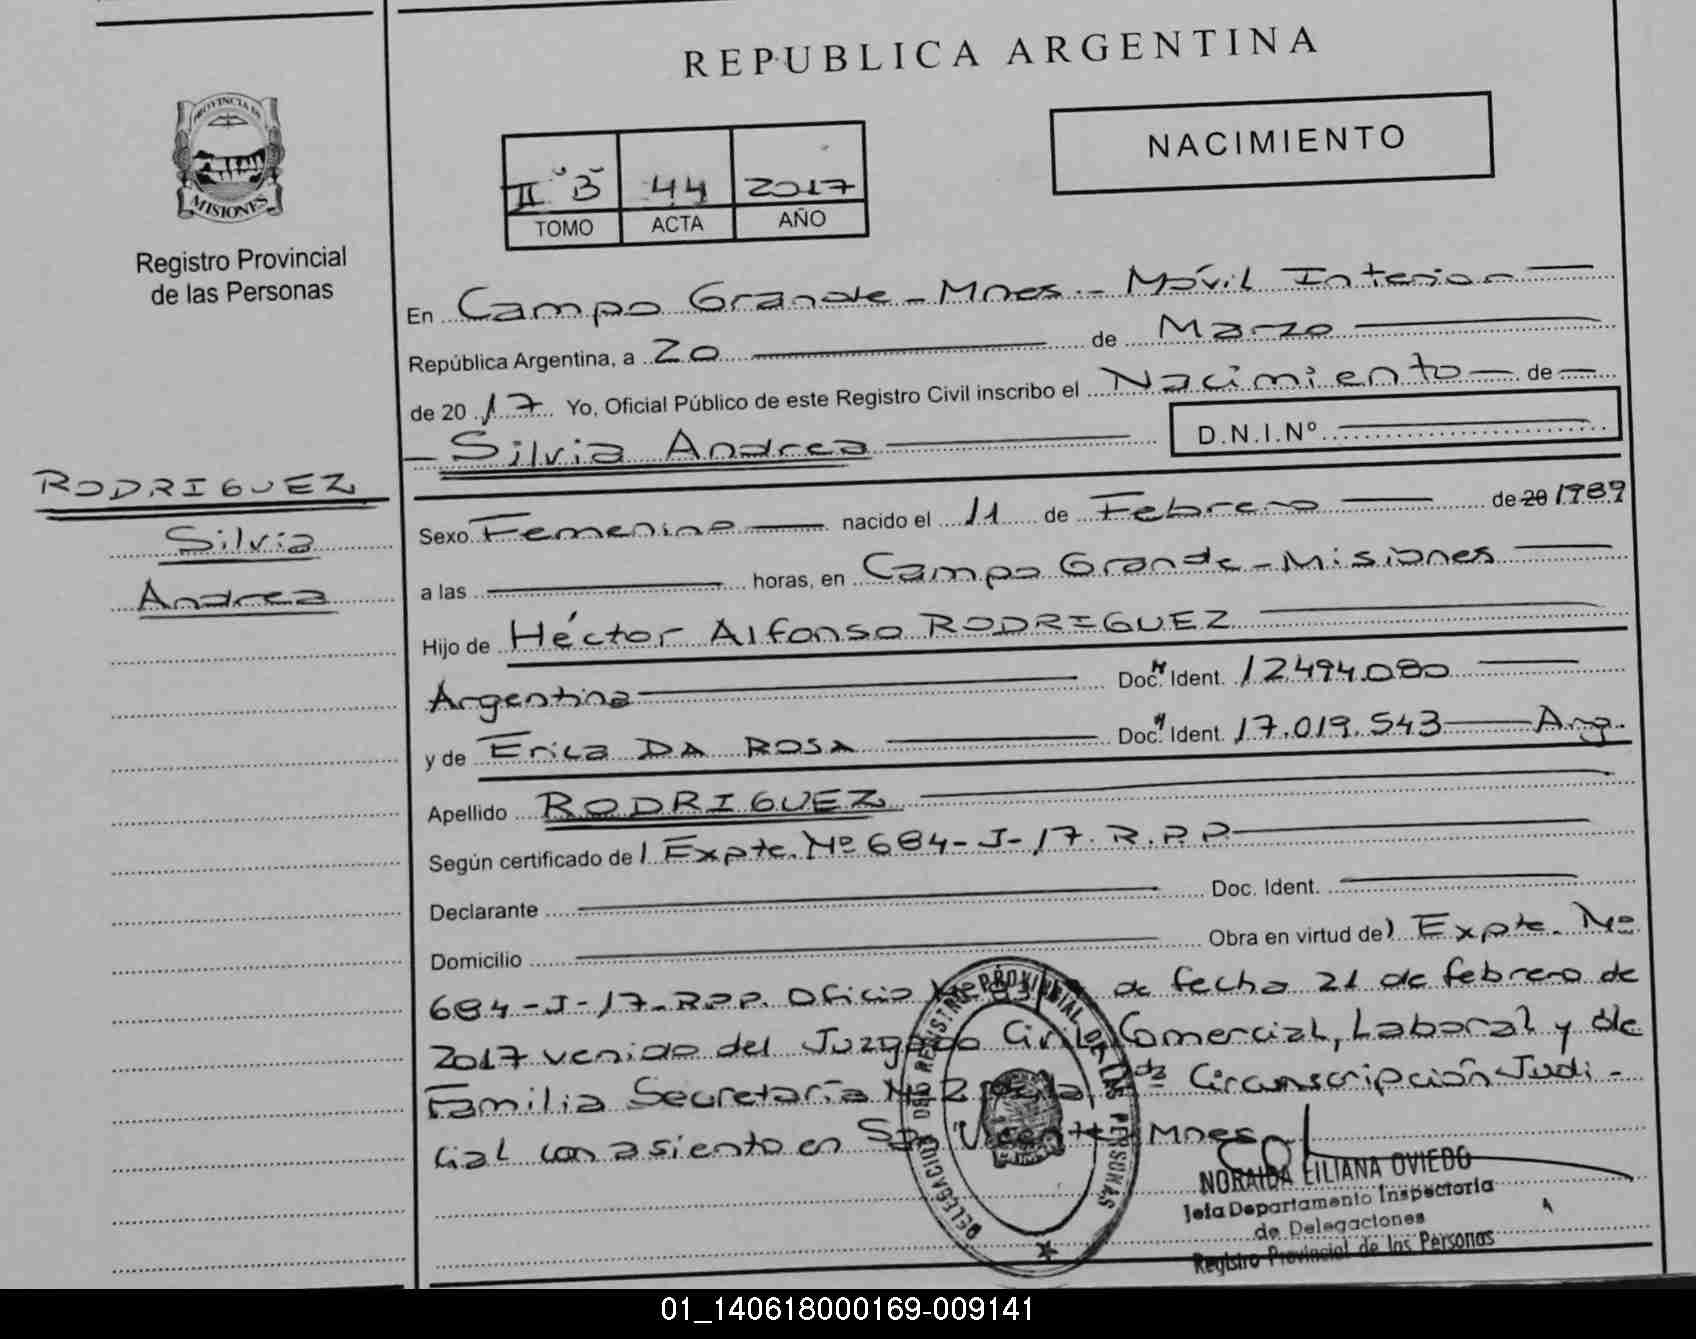 REPUBLICA ARGENTINA
PROVINCIA DE
MISIONES
Registro Provincial
de las Personas
NACIMIENTO
II "B" 44 2017
TOMO ACTA AÑO
En Campo Grande - Mnes. - Móvil Interior
República Argentina, a 20 de Marzo
de 20 17 Yo, Oficial Público de este Registro Civil inscribo el Nacimiento de
Silvia Andrea D.N.I.Nº
RODRIGUEZ
Silvia
Andrea
Sexo Femenino nacido el 11 de Febrero de 20 1989
a las horas, en Campo Grande - Misiones
Hijo de Héctor Alfonso RODRIGUEZ
Argentina Doc. Ident. 12.494.080
y de Erica DA ROSA Doc. Ident. 17.019.543 Arg.
Apellido RODRIGUEZ
Según certificado de l Expte. Nº 684-J-17. R.P.P
Declarante Doc. Ident.
Domicilio Obra en virtud de l Expte. Nº
684-J-17-R.P.P. Oficio Nº de fecha 21 de febrero de
2017 venido del Juzgado Civil, Comercial, Laboral y de
Familia Secretaría Nº 2 de la Circunscripción Judi-
cial con asiento en San Vicente Mnes
DELEGACION DEL REGISTRO PROVINCIAL DE LAS PERSONAS
NORAIDA LILIANA OVIEDO
Jefa Departamento Inspectoria
de Delegaciones
Registro Provincial de las Personas
01_140618000169-009141